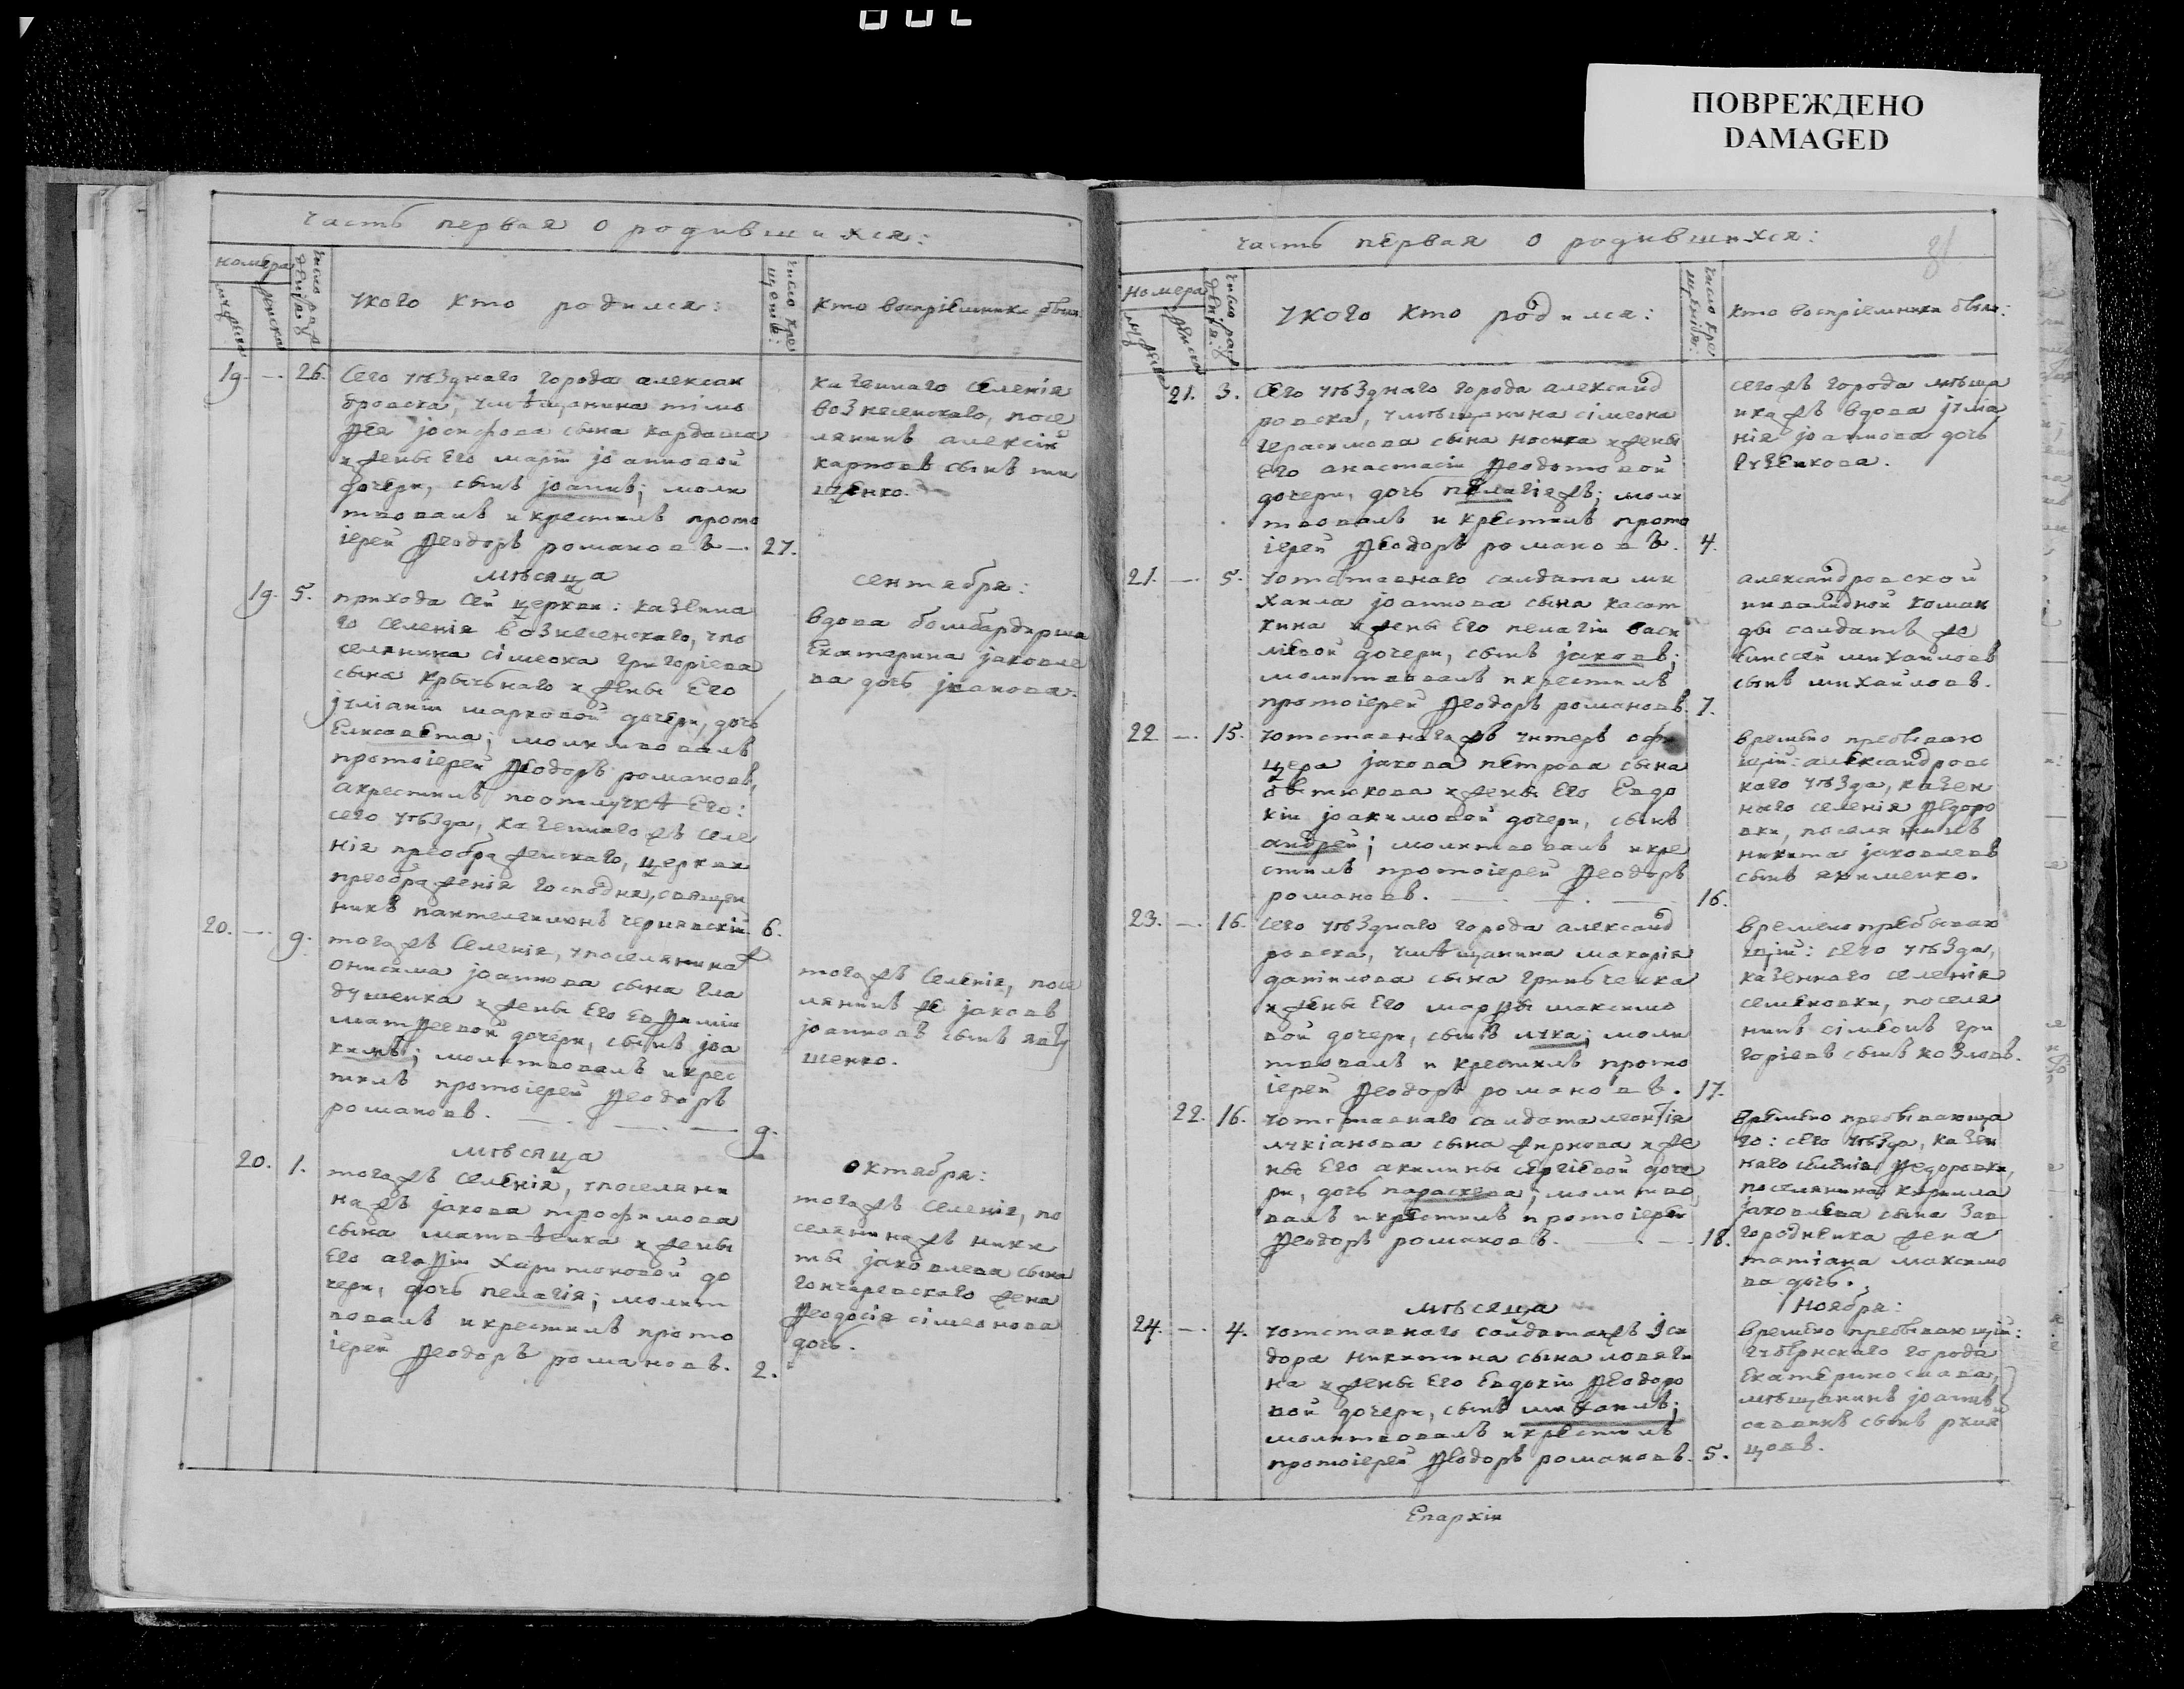 ПОВРЕЖДЕНО
DAMAGED
часть первая о родившихся:
номера
мужеска
женска
число рождения
укого кто родился:
число крещенія:
кто воспріемники были:
19. — 26.
Сего уѣзднаго города алексан
дровска, умѣщанина тімо
ѳея іосифова сына кардаша
и жены его маріи іоанновой
дочери, сынъ іоаннъ; моли
твовалъ и крестилъ прото
іерей Ѳеодоръ романовъ — 27.
казеннаго селенія
вознесенскаго, посе
лянинъ алексій
карповъ сынъ ти
щенко.
мѣсяца сентября:
19. 5.
прихода сей церкви: казенна
го селенія вознесенскаго, упо
селянина сімеона григоріева
сына и жены его
іуліаніи марковой дочери, дочь
Елисавета; молитвовалъ
протоіерей Ѳеодоръ романовъ,
а крестилъ поотлучкѣ его:
сего уѣзда, казеннагожъ селе
нія преображенскаго, церкви
преображенія господня, священ
никъ пантелеимонъ чернявскій. 6.
вдова бомбардирша
Екатерина іаковле
ва дочь іванова.
20. — 9.
тогожъ селенія, упоселянина
онисима іоаннова сына гла
душенка и жены его евѳиміи
матѳеевой дочери, сынъ іоа
кимъ; молитвовалъ и крес
тилъ протоіерей Ѳеодоръ
романовъ. — 9.
тогожъ селенія, посе
лянинъ же іаковъ
іоанновъ сынъ яву
шенко.
мѣсяца октября:
20. 1.
тогожъ селенія, упоселяни
нажъ іакова трофимова
сына матвѣенка и жены
его агаѳіи харитоновой до
чери, дочь пелагія; молит
вовалъ и крестилъ прото
іерей Ѳеодоръ романовъ. 2.
тогожъ селенія, по
селянинажъ ники
ты іаковлева сына
гончаревскаго жена
Ѳеодосія сімеонова
дочь.
часть первая о родившихся:
номера
мужеска
женска
число рождения
укого кто родился:
число крещенія:
кто воспріемники были:
21. 3.
Сего уѣзднаго города александ
ровска, умѣщанина сімеона
герасимова сына носика и жены
его анастасіи Ѳеодотовой
дочери, дочь пелагіяжъ; моли
твовалъ и крестилъ прото
іерей Ѳеодоръ романовъ. 4.
сегожъ города мѣща
нкажъ вдова іуліа
нія іоаннова дочь
21. — 5.
уотставнаго салдата ми
хаила іоаннова сына касат
кина и жены его пелагіи васи
лѣвой дочери, сынъ іаковъ;
молитвовалъ и крестилъ
протоіерей Ѳеодоръ романовъ. 7.
александровской
инвалидной коман
ды салдатъ же
Елисей михаиловъ
сынъ михайловъ.
22 — 15.
уотставнагожъ унтеръ офи
цера іакова петрова сына
и жены его Евдо
кіи іоакимовой дочери, сынъ
андрей; молитвовалъ и кре
стилъ протоіерей Ѳеодоръ
романовъ. — 16.
времено пребываю
щій: александровс
каго уѣзда, казен
наго селенія Ѳедоро
вки, поселянинъ
никита іаковлевъ
сынъ якименко.
23. — 16.
Сего уѣзднаго города александ
ровска, умѣщанина макарія
даніилова сына гринченка
и жены его марѳы максимо
вой дочери, сынъ лука; моли
твовалъ и крестилъ прото
іерей Ѳеодоръ романовъ. 17.
времено пребываю
щій: сего уѣзда,
казеннаго селенія
семеновки, поселя
нинъ сімеонъ гри
горіевъ сынъ козловъ.
22. 16.
уотставнаго салдата леонтія
лукіанова сына жиркова и же
ны его акилины сергіевой доче
ри, дочь параскева; молитво
валъ и крестилъ протоіерей
Ѳеодоръ романовъ. — 18.
времено пребывающа
го: сего уѣзда, казен
наго селенія Ѳедоровки,
поселянина кирилла
іаковлева сына зав
городнека жена
татіана максимо
ва дочь.
мѣсяца ноября:
24. — 4.
уотставнаго салдатажъ іси
дора никитина сына ловяги
на и жены его Евдокіи Ѳеодоро
вой дочери, сынъ михаилъ;
молитвовалъ и крестилъ
протоіерей Ѳеодоръ романовъ. 5.
времено пребывающій:
губернскаго города
Екатеринослава,
мѣщанинъ іоаннъ
саввинъ сынъ
цовъ.
Епархіи